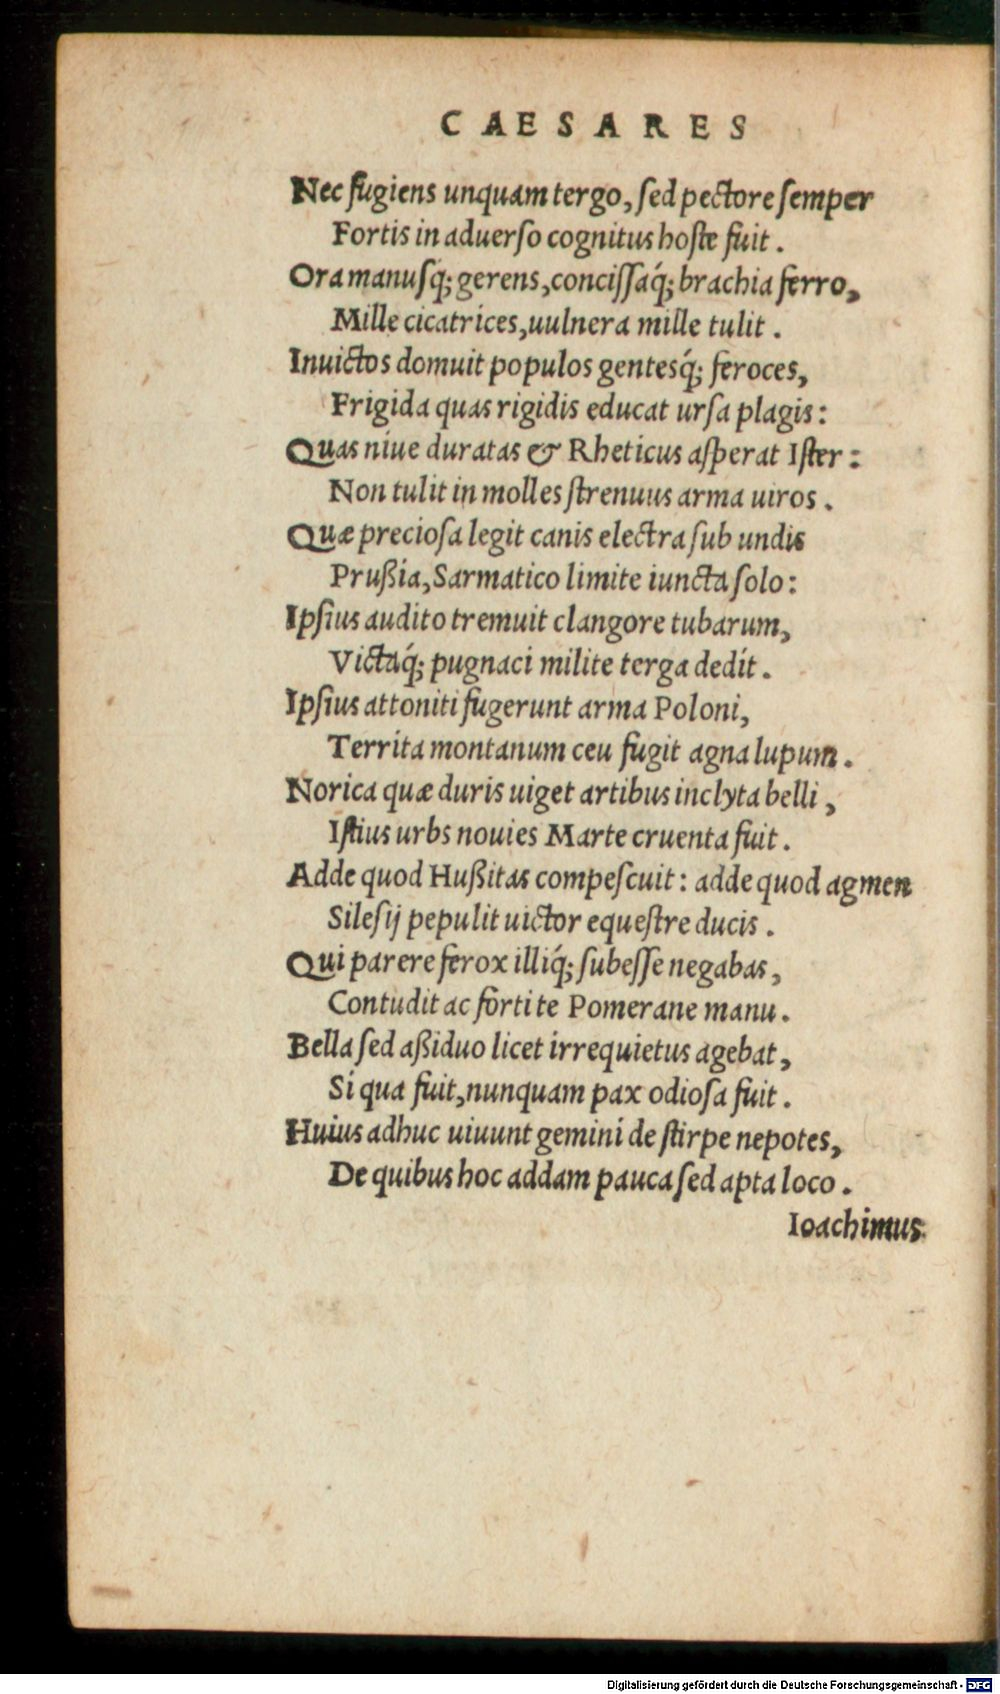 CAESARES
Nec fugiens unquam tergo, ſed pectore ſemper
Fortis in aduerſo cognitus hoſte fuit.
Ora manuſq́; gerens, conciſſaq́; brachia ferro,
Mille cicatrices, uulnera mille tulit.
Inuictos domuit populos gentesq́; feroces,
Frigida quas rigidis educat urſa plagis:
Quas niue duratas & Rheticus aſperat Iſter:
Non tulit in molles ſtrenuus arma uiros.
Quæ precioſa legit canis electra ſub undis
Prußia, Sarmatico limite iuncta ſolo:
Ipſius audito tremuit clangore tubarum,
Victaq́; pugnaci milite terga dedit.
Ipſius attoniti fugerunt arma Poloni,
Territa montanum ceu fugit agna lupum.
Norica quæ duris uiget artibus inclyta belli,
Iſtius urbs nouies Marte cruenta fuit.
Adde quod Hußitas compeſcuit: adde quod agmen
Sileſij pepulit uictor equeſtre ducis.
Qui parere ferox illiq́; ſubeſſe negabas,
Contudit ac forti te Pomerane manu.
Bella ſed aßiduo licet irrequietus agebat,
Si qua fuit, nunquam pax odioſa fuit.
Huius adhuc uiuunt gemini de ſtirpe nepotes,
De quibus hoc addam pauca ſed apta loco.
Ioachimus
Digitalisierung gefördert durch die Deutsche Forschungsgemeinschaft - DFG